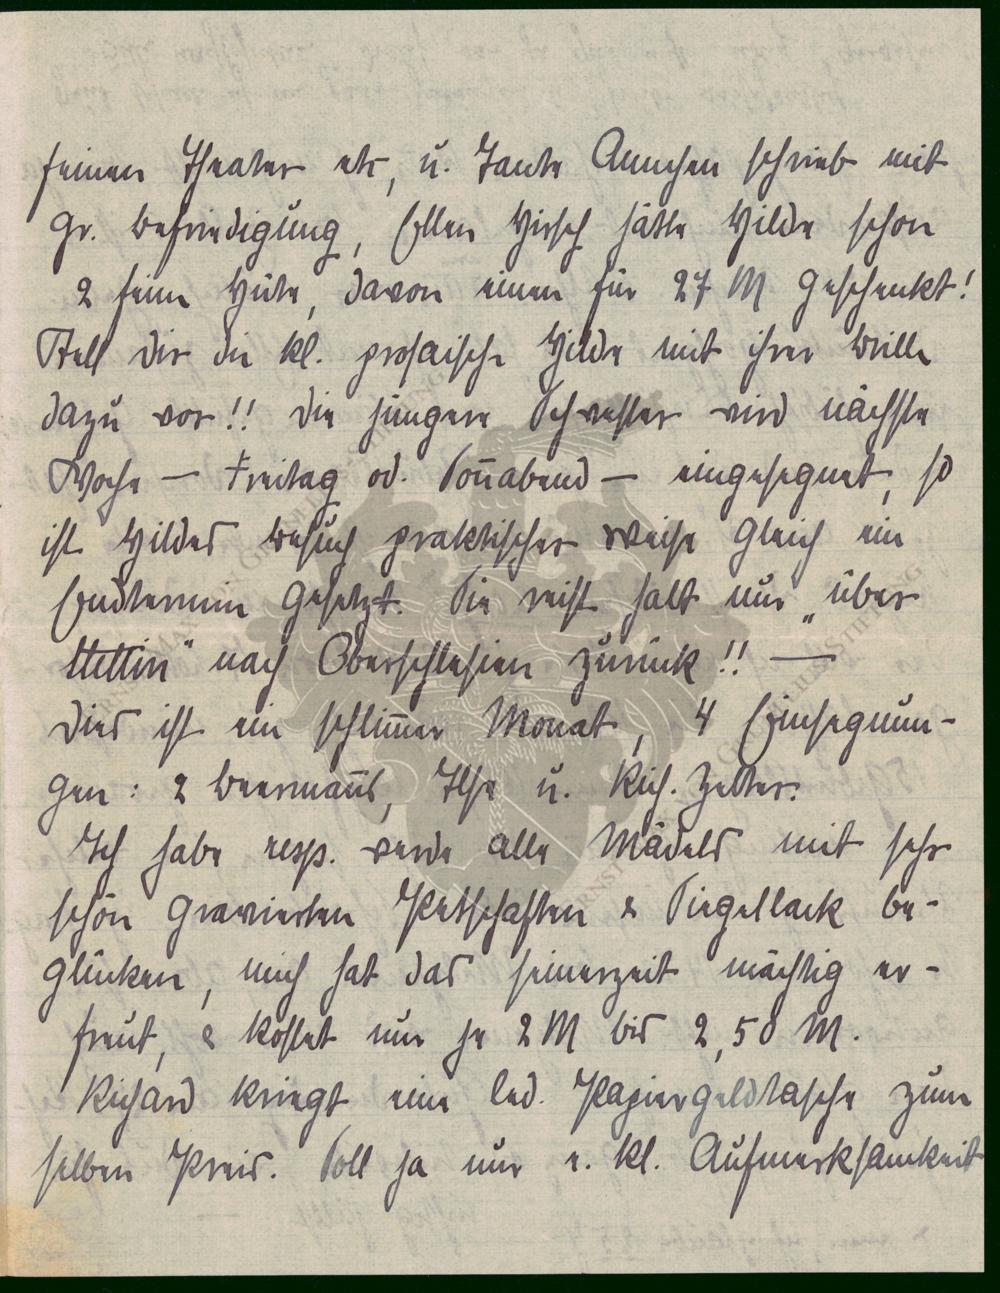 feinen Theater etc, u. Tante Annchen schrieb mit
gr. Befriedigung, Ellen Hirsch hätte Hilde schon
2 feine Hüte, davon einen für 27 M geschenkt!
Stell dir die kl. prosaische Hilde mit ihrer Brille
dazu vor!! Die jüngere Schwester wird nächste
Woche — Freitag od. Soñabend — eingesegnet, so
ist Hildes Besuch praktischer Weise gleich ein
Endtermin gesetzt. Sie reist halt nur „über
Stettin" nach Oberschlesien zurück!! —
Dies ist ein schlim̄er Monat, 4 Einsegnun-
gen: 2 Beermañs, Ilse u. Rich. Zelter.
Ich habe resp. werde alle Mädels mit sehr
schön gravierten Petschaften & Siegellack be-
glücken, mich hat das seinerzeit mächtig er-
freut, & kostet nur je 2 M bis 2,50 M.
Richard kriegt eine led. Papiergeldtasche zum
selben Preis. Soll ja nur e. kl. Aufmerksamkeit